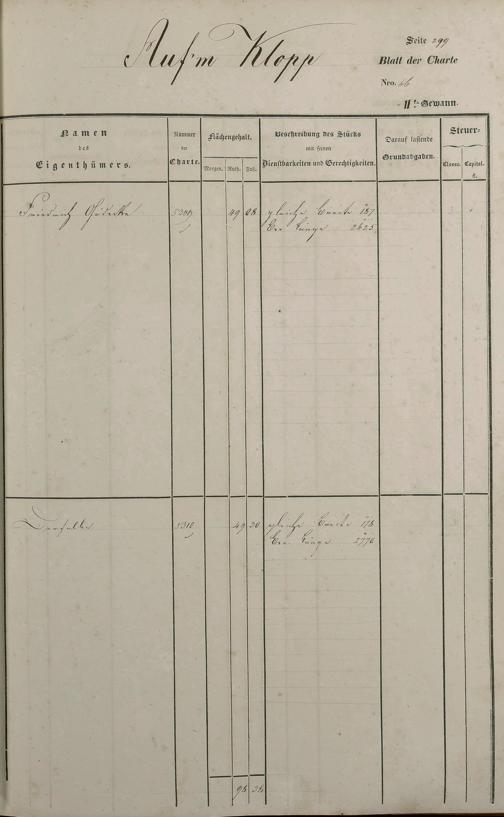 Auf'm Klopp
Seite 299
Blatt der Charte
Nro. 46
11te Gewann.
Namen
des
Eigenthümers.
Nummer
der
Charte.
Flächengehalt.
Morgen. Ruth. Fuß.
Beschreibung des Stücks
mit seinen
Dienstbarkeiten und Gerechtigkeiten.
Darauf lastende
Grundabgaben.
Steuer-
Classe. Capital.
fl.
Friedrich 5309 49 08 gleiche Breite 187
Die Länge 2625
Derselbe 5310 49 30 gleiche Breite 178
Die Länge 2770
98 38